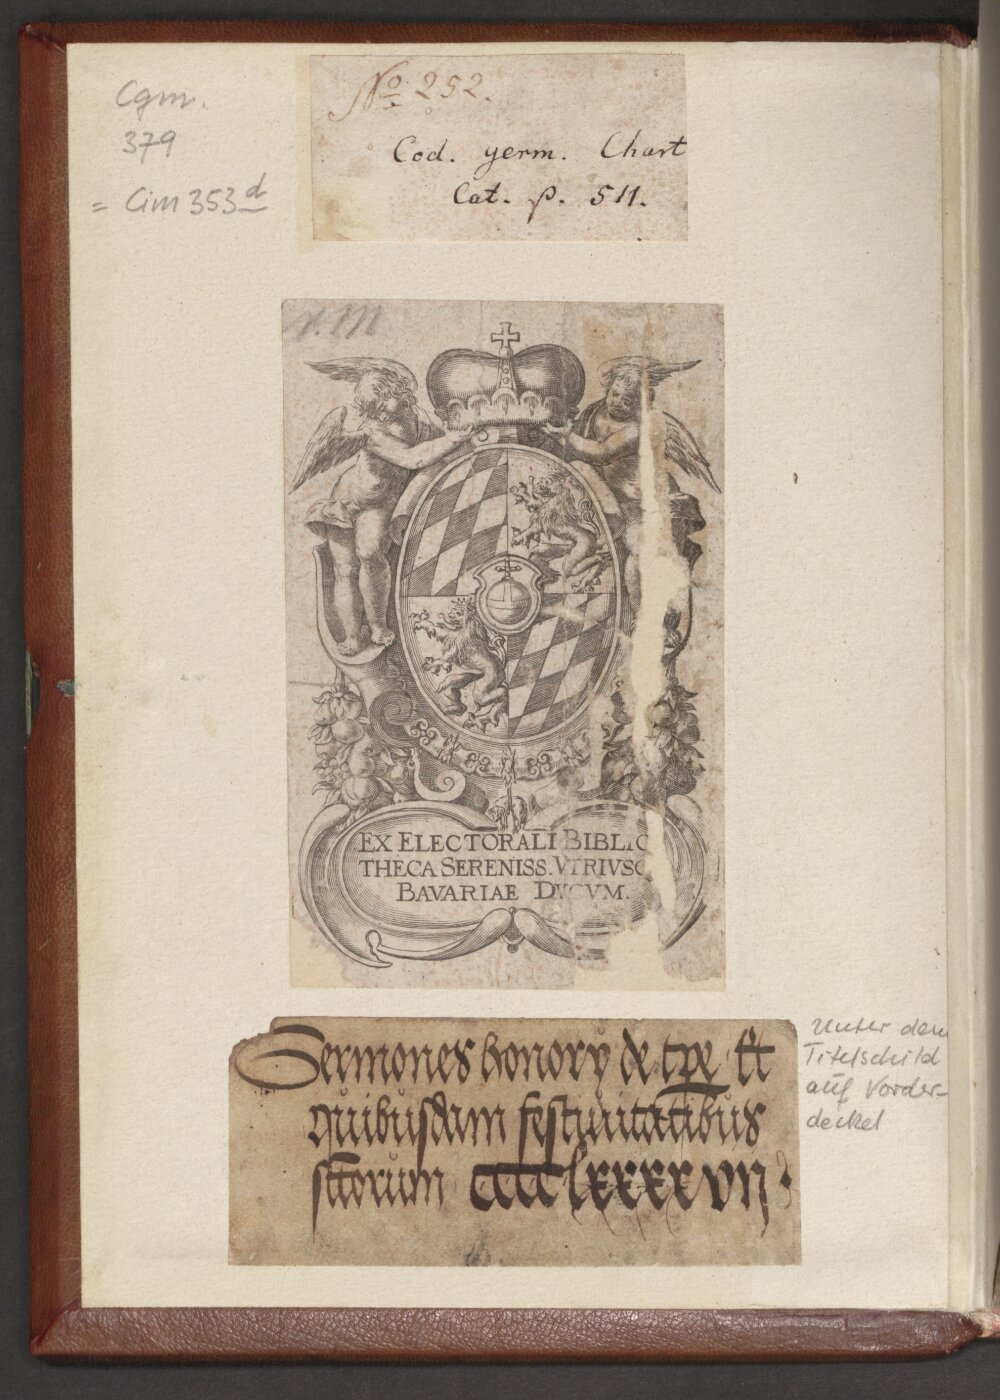 Cgm.
379
= Cim 353 d
No 252.
Cod. germ. Chart
Cat. p. 511.
EX ELECTORALI BIBLIO
THECA SERENISS. VTRIVSQ
BAVARIAE DVCVM.
Sermones honorij de tpe Et
quibusdam festiuitatibus
sctorum cccclxxxxvij
Unter dem
Titelschild
auf Vorder-
deckel